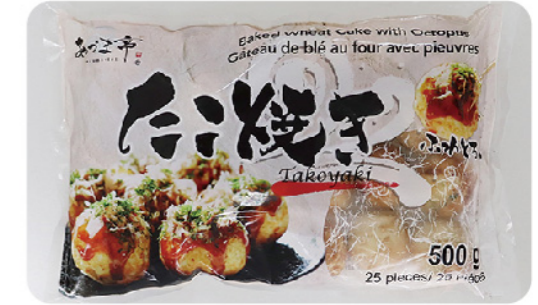 あづま市
Baked Wheat Cake with Octopus
Gâteau de blé au four avec pieuvres
たこ焼き
ふわとろ
Takoyaki
500g
25 pieces/ 25 pièces